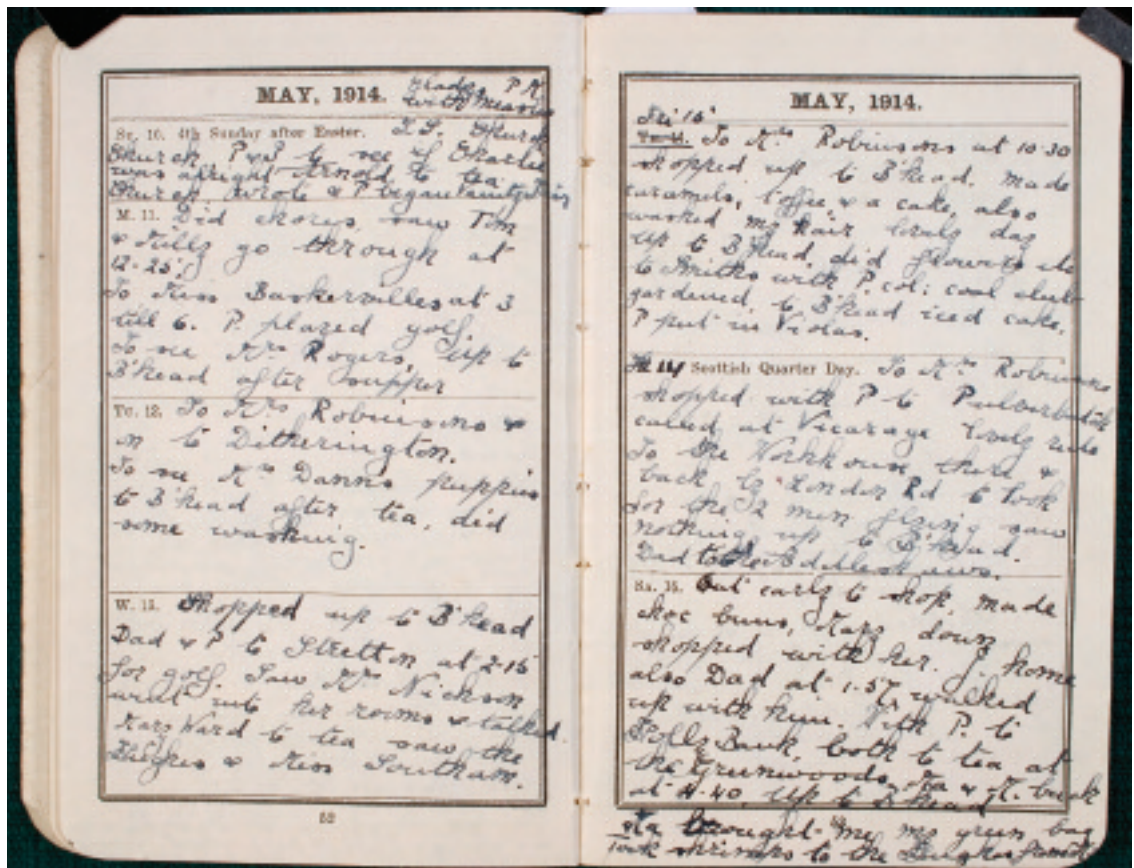 MAY, 1914.
with measles
Su. 10. 4th Sunday after Easter. S.S. Church
Church P & J to see if Charlie
was alright Arnold to tea
Church wrote & P began
M. 11. Did chores, saw Tom
& go through at
12-25.
To Miss Baskervilles at 3
till 6. P. played golf.
To see Mrs Rogers, up to
B'head after supper
Tu. 12. To Mrs Robinsons &
on to Ditherington.
To see Mrs Danns puppies
to B'head after tea, did
some washing.
W. 13. Shopped up to B'head
Dad & P to Stretton at 2-15
for golf. Saw Mrs Nickson
went into her rooms & talked.
Mary Ward to tea saw the
Hughes & Miss Southam.
52
MAY, 1914.
Fri 15
To Mrs Robinsons at 10-30
shopped up to B'head. made
caramels, toffee & a cake, also
washed my hair lovely day
up to B'head, did flowers etc
to Smiths with P. col: coal club
gardened, to B'head iced cake.
P put in Violas.
Th 14 Scottish Quarter Day. To Mrs Robinsons
shopped with P to Pulverbatch
called at Vicarage lovely ride
To the Workhouse, there &
back by London Rd to look
for the 12 men flying saw
nothing, up to B'head.
Dad to the
Sa. 16. Out early to shop, made
choc buns, Mary down
shopped with her. J. home
also Dad at 1-57, walked
up with him. With P. to
Holly Bank, both to tea at
the Greenwoods, Ma & M. back
at 4-40. Up to B'head
Ma brought me my green bag
took shrimps to the Hughes